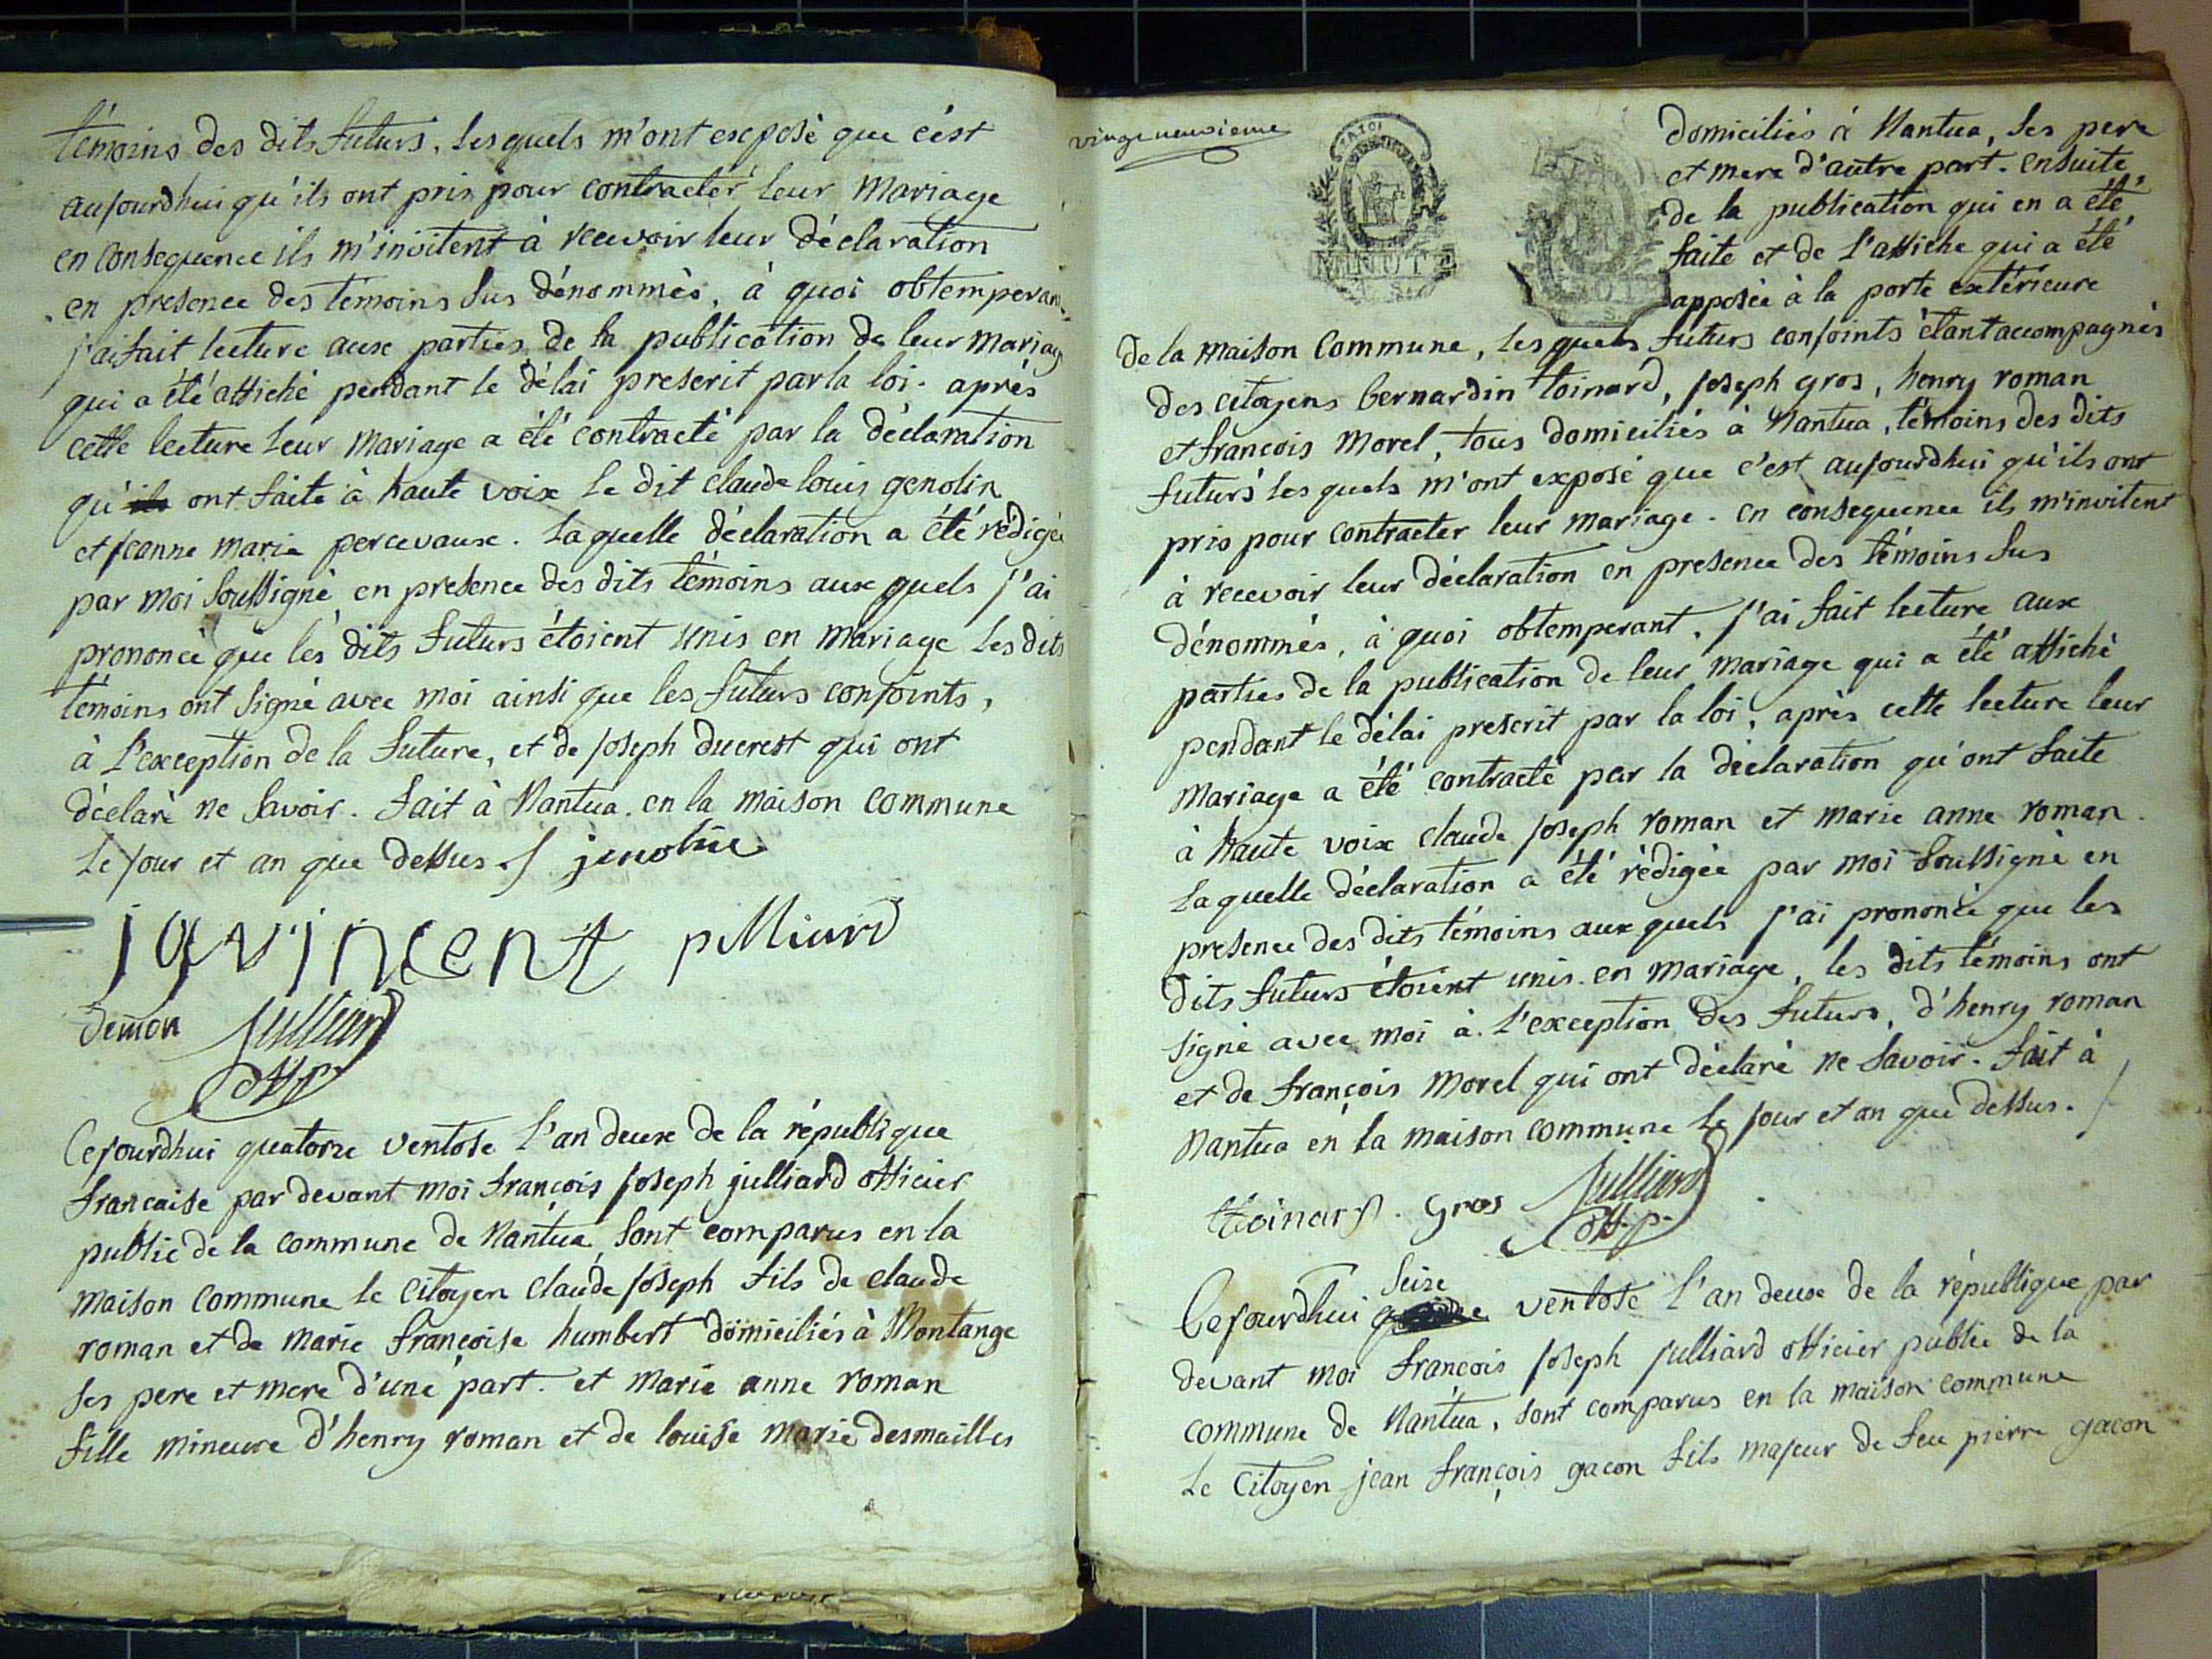 témoins des dits futurs, lesquels m'ont exposé que c'est
aujourdhui qu'ils ont pris pour contracter leur mariage
en consequence ils m'invitent à recevoir leur déclaration
en presence des témoins sus dénommés, à quoi obtemperant
j'ai fait lecture aux parties de la publication de leur mariag
qui a été affiché pendant le délai prescrit par la loi. après
cette lecture leur mariage a été contracté par la déclaration
qu'ils ont faite à haute voix le dit claude louis genolin
et jeanne marie percevaux. laquelle déclaration a été rédigée
par moi soussigné en presence des dits témoins aux quels j'ai
prononcé que les dits futurs étoient unis en mariage les dits
témoins ont signé avec moi ainsi que les futurs conjoints,
à l'exception de la future, et de joseph ducrest qui ont
déclaré ne savoir. fait à Nantua en la maison commune
le jour et an que dessus
javincent
Julliard
off p
Cejourdhui quatorze ventose l'an deux de la république
francaise par devant moi françois joseph julliard officier
public de la commune de Nantua sont comparus en la
maison commune le citoyen claude joseph fils de claude
roman et de marie françoise humbert domiciliés à Montange
ses pere et mere d'une part. et marie anne roman
fille mineure d'henry roman et de louise marie desmailles
vingt neuvieme
MINUTE
domiciliés à Nantua, ses pere
et mere d'autre part. ensuite
de la publication qui en a été
faite et de l'affiche qui a été
apposée à la porte extérieure
de la maison commune, les quels futurs conjoints étant accompagnés
des citoyens bernardin toinard, joseph gros, henry roman
et françois morel, tous domiciliés à Nantua, témoins des dits
futurs les quels m'ont exposé que c'est aujourdhui qu'ils ont
pris pour contracter leur mariage. en consequence ils m'invitent
à recevoir leur déclaration en presence des témoins sus
dénommés, à quoi obtemperant, j'ai fait lecture aux
parties de la publication de leur mariage qui a été affiché
pendant le délai prescrit par la loi, après cette lecture leur
mariage a été contracté par la déclaration qu'ont faite
à haute voix claude joseph roman et marie anne roman.
laquelle déclaration a été rédigée par moi soussigné en
presence des dits témoins aux quels j'ai prononcé que les
dits futurs étoient unis en mariage, les dits témoins ont
signé avec moi à l'exception des futurs, d'henry roman
et de françois morel qui ont déclaré ne savoir. fait à
Nantua en la maison commune le jour et an que dessus.
ttoinard. Gros Julliard
off. p.
seize
Cejourdhui ventose l'an deux de la république par
devant moi françois joseph julliard officier public de la
commune de Nantua, sont comparus en la maison commune
le citoyen jean françois gacon fils majeur de feu pierre gacon